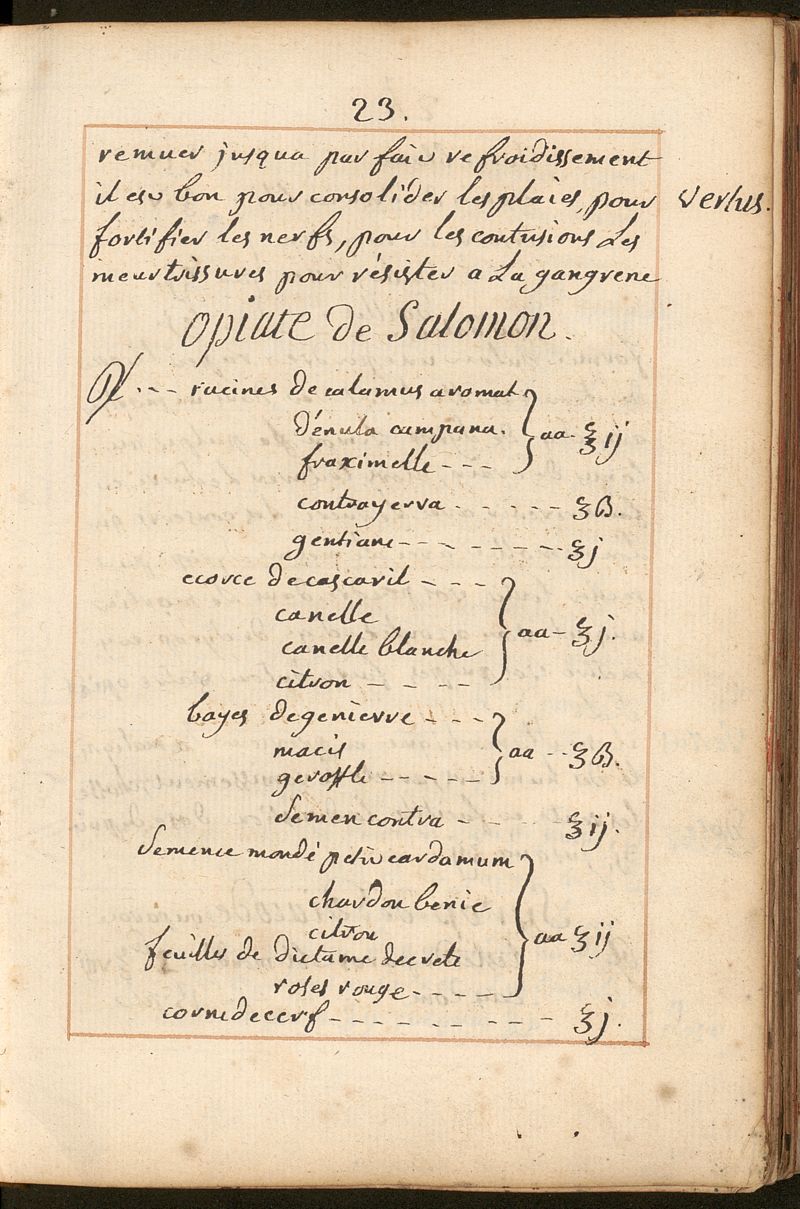 23.
remuer jusqua parfaic refroidissement
il esc bon pour consolider les plaies, pour vertus.
fortifier les nerfs, pour les contusions Les
meurtrissures pour résister a La gangrene
opiate de Salomon.
℞ --- racines de calamus aromat
d'énula campana. } aa- ʒ ij
fraximelle - - -
contrayerva - - - - - - ʒ ß.
gentiane - - - - - - - - ʒ j
ecorce de cascaril - - - -
canelle
canelle blanche } aa- ʒ j.
citron - - - -
bayes de genievre - - - -
macis } aa -- ʒ ß.
geroffle - - - - -
semen contra - - - - - ʒ ij.
semence mondé petic cardamum
chardon benic
citron
feuilles de dictame decrete } aa ʒ ij
roses rouge - - - - -
corne de cerf - - - - - - - - - ʒ j.